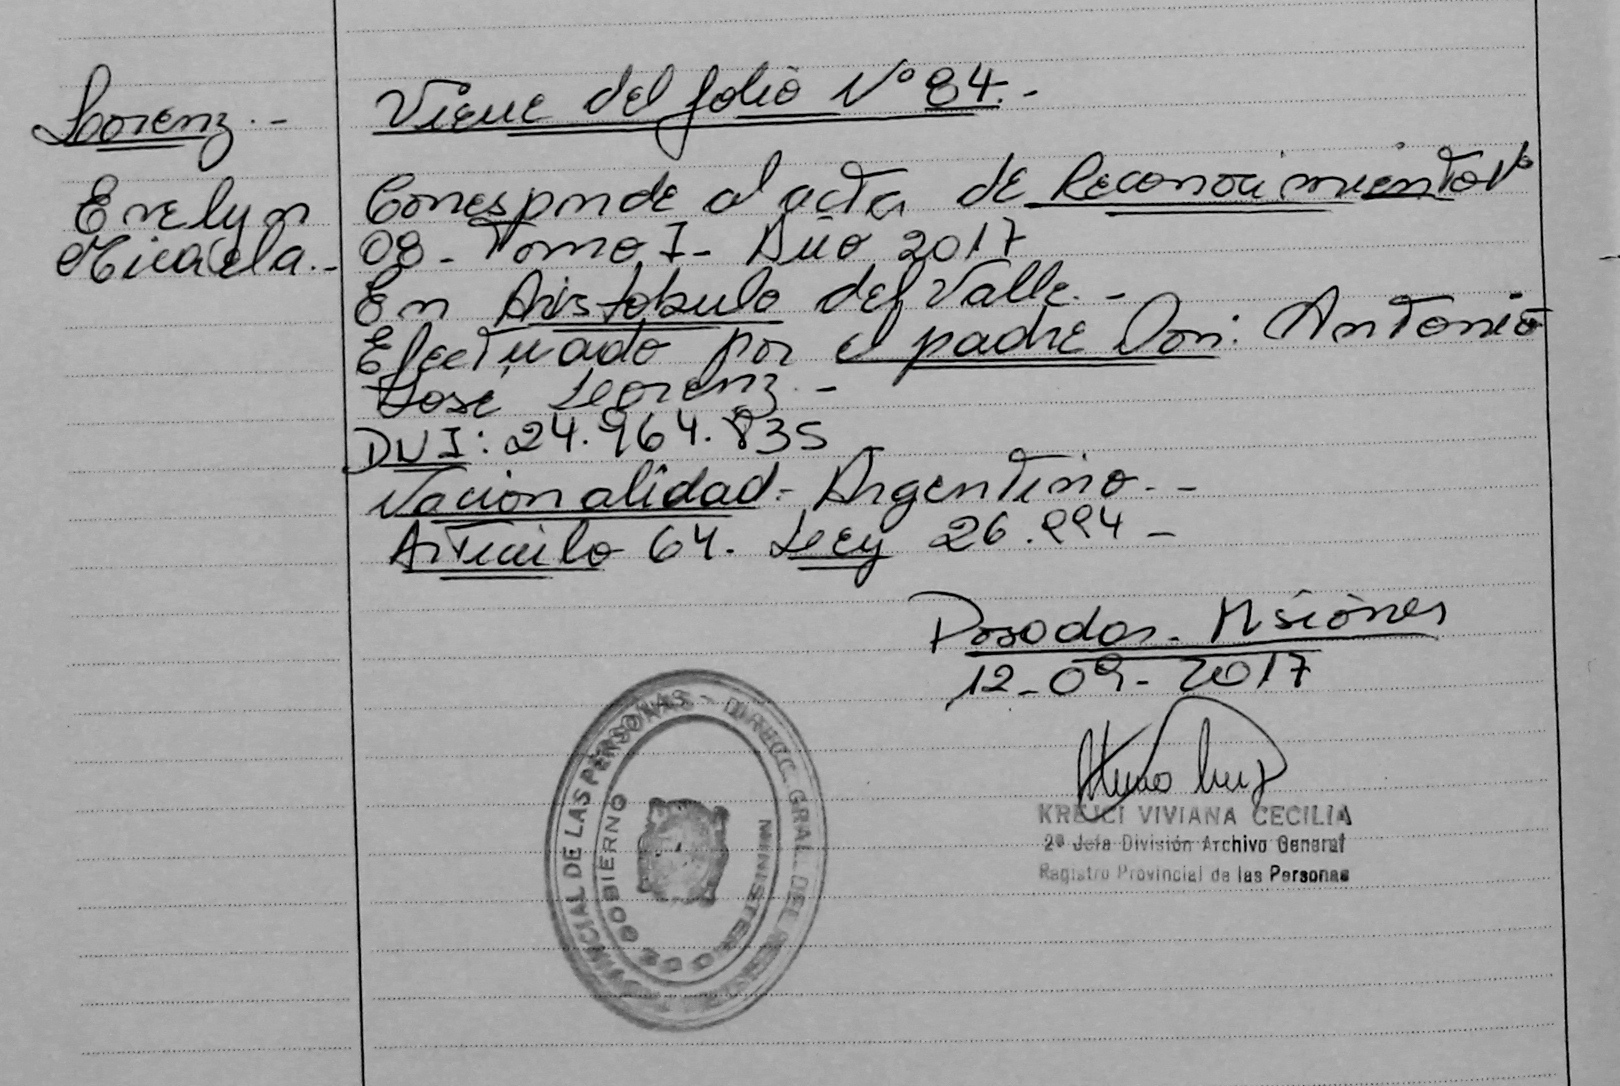 Lorenz.-
Evelyn
Micaela.-
Viene del folio Nº 84.-
Corresponde al acta de Reconocimiento Nº
08- Tomo I- Año 2017
En Aristobulo del Valle.-
Efectuado por el padre Don: Antonio
José Lorenz.-
DNI: 24.964.835
Nacionalidad- Argentino.-
Articulo 64. Ley 26.994-
Posadas- Misiones
12-09-2017
KREJCI VIVIANA CECILIA
2ª Jefa División Archivo General
Registro Provincial de las Personas
DIRECC. GRAL. DEL REGISTRO PROVINCIAL DE LAS PERSONAS -
MINISTERIO DE GOBIERNO